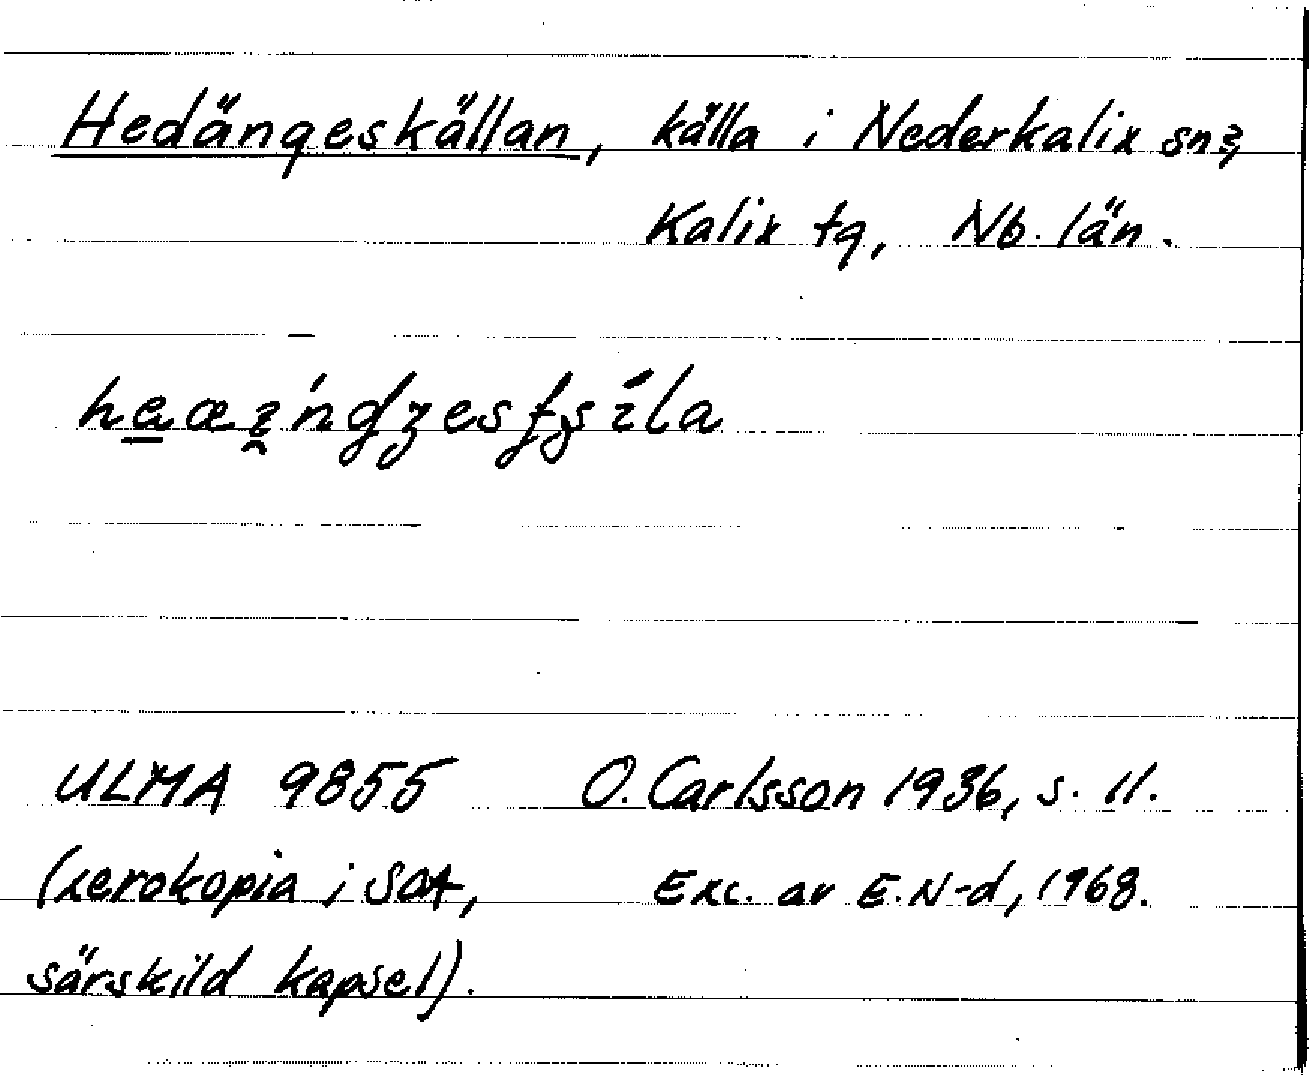 Hedängeskällan, källa i Nederkalix sn,
Kalix tg, Nb. län.
ULMA 9855 O. Carlsson 1936, s. 11.
(xerokopia i SOA, Exc. av E. N-d, 1968.
särskild kapsel).